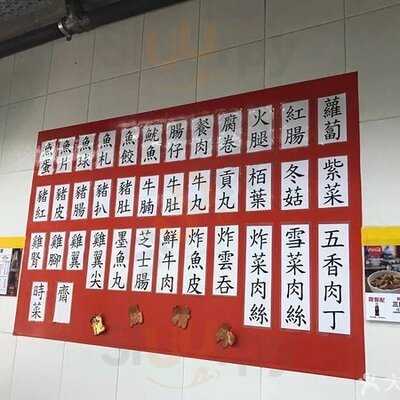 魚蛋
魚片
魚球
魚札
魚餃
魷魚
腸仔
餐肉
腐卷
火腿
紅腸
蘿蔔
豬紅
豬皮
豬腸
豬扒
豬肚
牛腩
牛肚
牛丸
貢丸
栢葉
冬菇
紫菜
雞腎
雞腳
雞翼
雞翼尖
墨魚丸
芝士腸
鮮牛肉
炸魚皮
炸雲吞
炸菜肉絲
雪菜肉絲
五香肉丁
時菜
齋